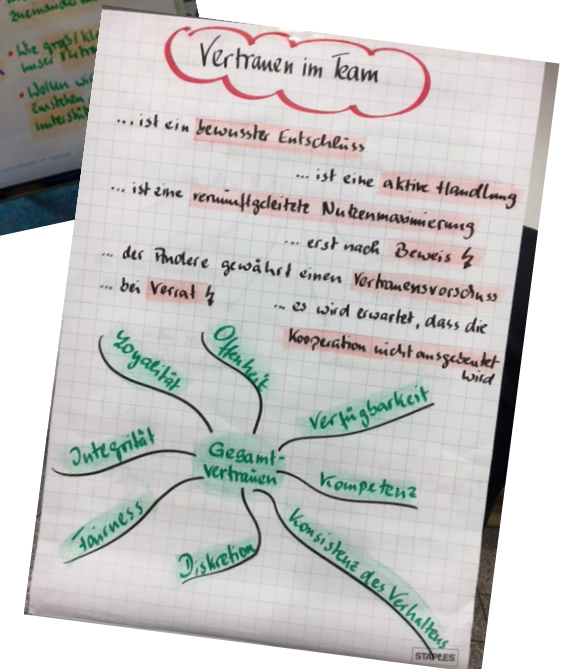 zueinander
• Wie groß/
unser
• Wollen
einstehen
unterstüt
Vertrauen im Team
...ist ein bewusster Entschluss
...ist eine aktive Handlung
...ist eine vernunftgeleitete Nutzenmaximierung
... erst nach Beweis ↯
... der Andere gewährt einen Vertrauensvorschuss
... bei Verrat ↯
... es wird erwartet, dass die
Kooperation nicht ausgebeutet
wird
Loyalität
Offenheit
Verfügbarkeit
Integrität
Gesamt-
vertrauen
Kompetenz
Fairness
Diskretion
Konsistenz des Verhaltens
STAPLES